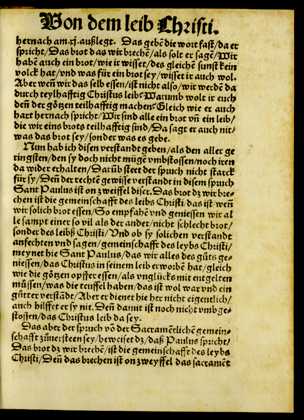 Von dem leib Christi.
hernach am .xj. außlegt. Das gebē die wort fast/ da er
spricht/ Das brot das wir brechē/ als solt er sagē/ Wir
habē auch ein brot/ wie ir wisset/ des gleichē sunst kein
volck hat/ vnd was für ein brot sey/ wisset ir auch wol.
Aber weñ wir das selb essen/ ist nicht also/ wir werdē da
durch teylhafftig Christus leib? Warumb wolt ir euch
deñ der götzen teilhafftig machen? Gleich wie er auch
hart hernach spricht/ Wir sind alle ein brot vñ ein leib/
die wir eins brots teilhafftig sind/ Da sagt er auch nit/
was das brot sey/ sonder was es gebe.
Nun hab ich disen verstandt geben/ als den aller ge
ringsten/ den sy doch nicht mügē vmbstossen/ noch iren
da wider erhalten/ Darüb steet der spruch nicht starck
für sy/ Deñ der rechte gewisse verstandt in disem spruch
Sant Paulus ist on zweiffel diser. Das brot dz wir bre-
chen ist die gemeinschafft des leibs Christi/ das ist weñ
wir solich brot essen/ So empfahē vnd geniessen wir al
le sampt einer so vil als der ander/ nicht schlecht brot/
sonder des leibs Christi/ Vnd ob sy solichen verstandt
anfechten vnd sagen/ gemeinschafft des leybs Christi/
meynet hie Sant Paulus/ das wir alles des gūts ge-
niessen/ das Christus in seinem leib erworbē hat/ gleich
wie die götzen opffrer essen/ als vnglücks mit entgelten
müssen/ was die teuffel haben/ das ist wol war vnd ein
gůtter verstādt/ Aber er dienet hie her nicht eigentlich/
auch hilfft er sy nit. Deñ damit ist noch nicht vmbge-
stossen/ das Christus leib da sey.
Das aber der spruch võ der Sacramētlichē gemein-
schafft zůuersteen sey/ beweiset dz/ daß Paulus spricht/
Das brot dz wir brechē/ ist die gemeinschafft des leybs
Christi/ Deñ das brechen ist on zweyffel das sacramēt